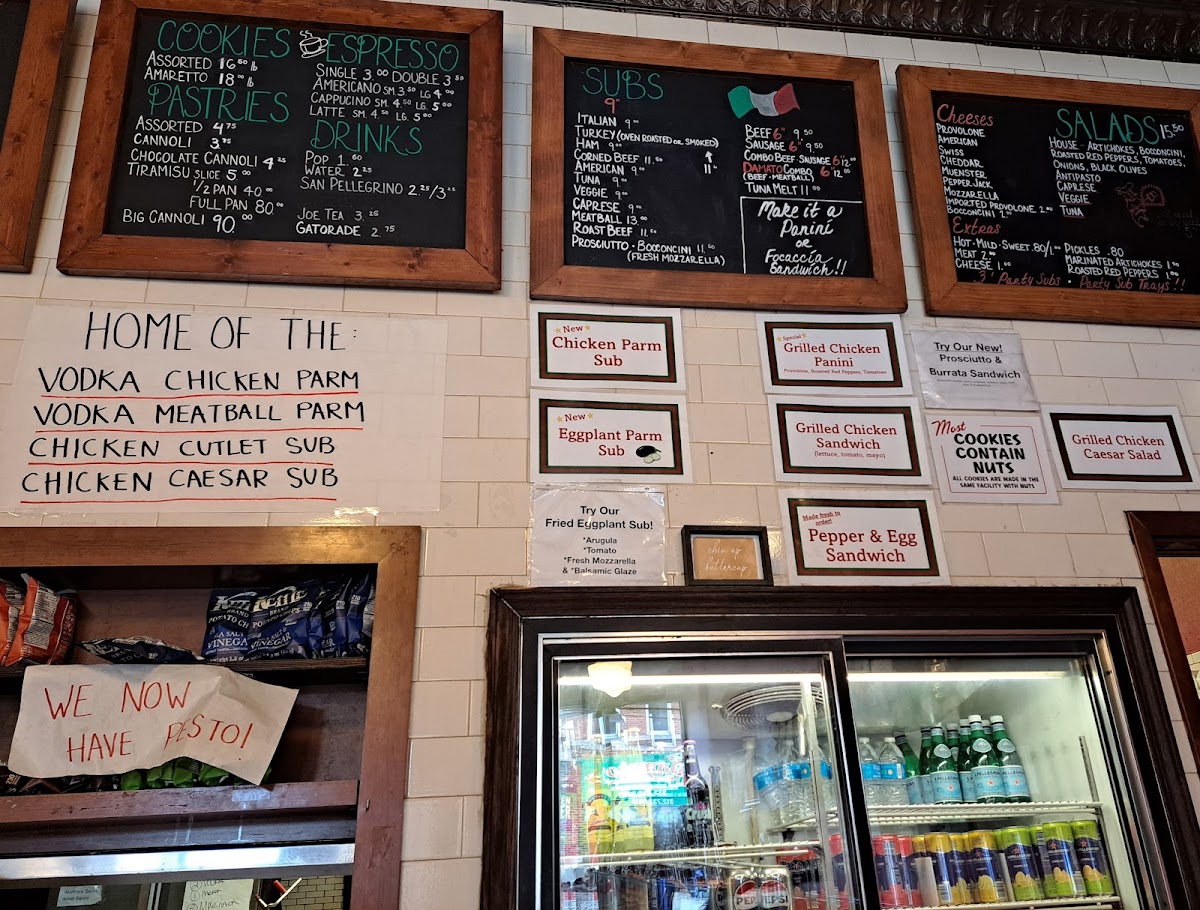 COOKIES
ASSORTED 16.50 lb
AMARETTO 18.00 lb
PASTRIES
ASSORTED 4.75
CANNOLI 3.75
CHOCOLATE CANNOLI 4.25
TIRAMISU SLICE 5.00
1/2 PAN 40.00
FULL PAN 80.00
BIG CANNOLI 90.00
ESPRESSO
SINGLE 3.00 DOUBLE 3.50
AMERICANO SM. 3.50 LG 4.00
CAPPUCINO SM. 4.50 LG. 5.00
LATTE SM. 4.50 LG. 5.00
DRINKS
POP 1.60
WATER 2.25
SAN PELLEGRINO 2.25/3.25
JOE TEA 3.25
GATORADE 2.75
SUBS
9"
ITALIAN 9.00
TURKEY (OVEN ROASTED OR SMOKED)
HAM 9.00
11.00
CORNED BEEF 11.50
AMERICAN 9.00
TUNA 9.00
VEGGIE 9.00
CAPRESE 9.00
MEATBALL 13.00
ROAST BEEF 11.50
PROSCIUTTO - BOCCONCINI 11.50
(FRESH MOZZARELLA)
BEEF 6" 9.50
SAUSAGE 6" 9.50
COMBO BEEF-SAUSAGE 6" 12.00
DAMATO COMBO 6" 12.00
(BEEF-MEATBALL)
TUNA MELT 11.00
Make it a
Panini
or
Focaccia
Sandwich!!
Cheeses
PROVOLONE
AMERICAN
SWISS
CHEDDAR
MUENSTER
PEPPER JACK
MOZZARELLA
IMPORTED PROVOLONE 2.00
BOCCONCINI 2.00
Extras
HOT-MILD-SWEET .80/1.00
MEAT 2.00
CHEESE 1.00
SALADS 15.50
HOUSE - ARTICHOKES, BOCCONCINI,
ROASTED RED PEPPERS, TOMATOES,
ONIONS, BLACK OLIVES
ANTIPASTO
CAPRESE
VEGGIE
TUNA
PICKLES .80
MARINATED ARTICHOKES 1.00
ROASTED RED PEPPERS 1.00
3' Party Subs • Party Sub Trays!!
HOME OF THE:
VODKA CHICKEN PARM
VODKA MEATBALL PARM
CHICKEN CUTLET SUB
CHICKEN CAESAR SUB
New
Chicken Parm
Sub
Special
Grilled Chicken
Panini
Provolone, Roasted Red Peppers, Tomatoes
Try Our New!
Prosciutto &
Burrata Sandwich
New
Eggplant Parm
Sub
Grilled Chicken
Sandwich
(lettuce, tomato, mayo)
Most
COOKIES
CONTAIN
NUTS
ALL COOKIES ARE MADE IN THE
SAME FACILITY WITH NUTS
Grilled Chicken
Caesar Salad
Try Our
Fried Eggplant Sub!
*Arugula
*Tomato
*Fresh Mozzarella
& *Balsamic Glaze
chin up
buttercup
Made fresh to
order!
Pepper & Egg
Sandwich
Kettle
BRAND
POTATO CHIPS
SEA SALT
VINEGAR
WE NOW
HAVE PESTO!
S.PELLEGRINO
Crush
PEPSI